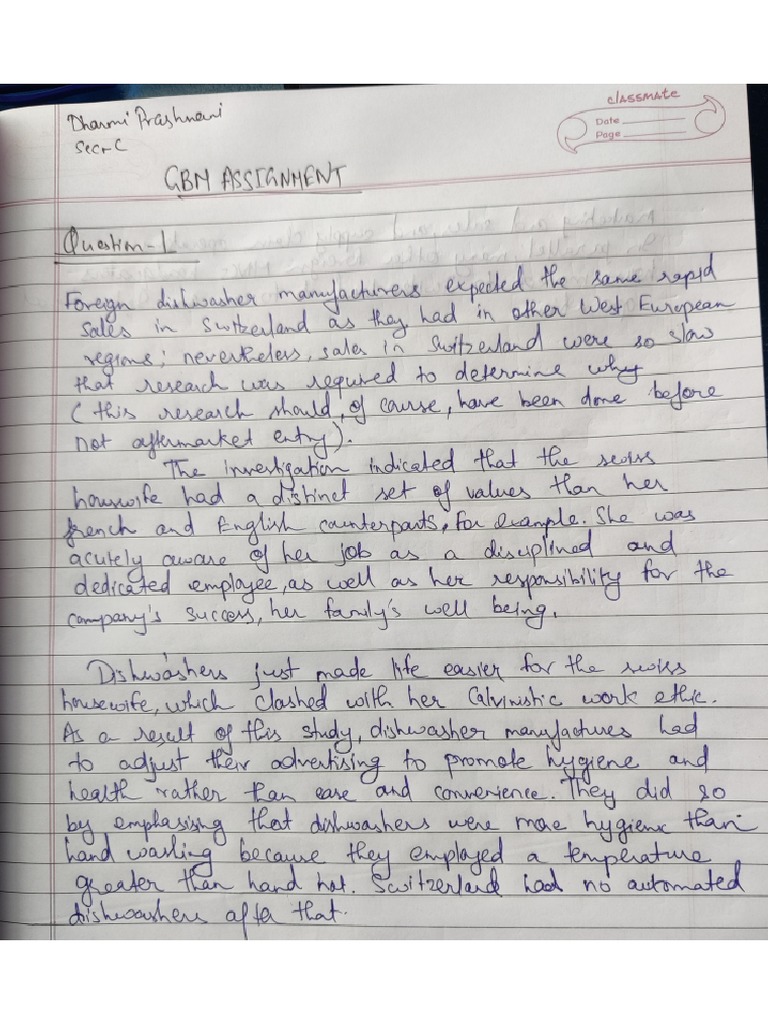 classmate
Date
Page
Dharmi Prashnani
Sec-C
GBM ASSIGNMENT
Question-1
Foreign dishwasher manufacturers expected the same rapid
sales in Switzerland as they had in other West European
regions; nevertheless, sales in Switzerland were so slow
that research was required to determine why
(this research should, of course, have been done before
not aftermarket entry).
The investigation indicated that the swiss
housewife had a distinct set of values than her
french and English counterparts, for example. She was
acutely aware of her job as a disciplined and
dedicated employee, as well as her responsibility for the
company's success, her family's well being.
Dishwashers just made life easier for the swiss
housewife, which clashed with her Calvinistic work ethic.
As a result of this study, dishwasher manufactures had
to adjust their advertising to promote hygiene and
health rather than ease and convenience. They did so
by emphasising that dishwashers were more hygienic than
hand washing because they employed a temperature
greater than hand hot. Switzerland had no automated
dishwashers after that.